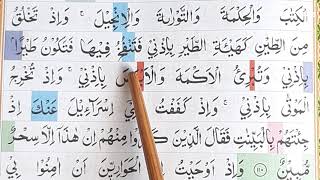 الْكِتٰبَ وَالْحِكْمَةَ وَالتَّوْرٰىةَ وَالْاِنْجِيْلَ ۚ وَاِذْ تَخْلُقُ
مِنَ الطِّيْنِ كَهَيْـَٔةِ الطَّيْرِ بِاِذْنِيْ فَتَنْفُخُ فِيْهَا فَتَكُوْنُ طَيْرًاۢ
بِاِذْنِيْ وَتُبْرِئُ الْاَكْمَهَ وَالْاَبْرَصَ بِاِذْنِيْ ۚ وَاِذْ تُخْرِجُ
الْمَوْتٰى بِاِذْنِيْ ۚ وَاِذْ كَفَفْتُ بَنِيْٓ اِسْرَآءِيْلَ عَنْكَ اِذْ
جِئْتَهُمْ بِالْبَيِّنٰتِ فَقَالَ الَّذِيْنَ كَفَرُوْا مِنْهُمْ اِنْ هٰذَآ اِلَّا سِحْرٌ
مُّبِيْنٌ ١١٠ وَاِذْ اَوْحَيْتُ اِلَى الْحَوَارِيّٖنَ اَنْ اٰمِنُوْا بِيْ